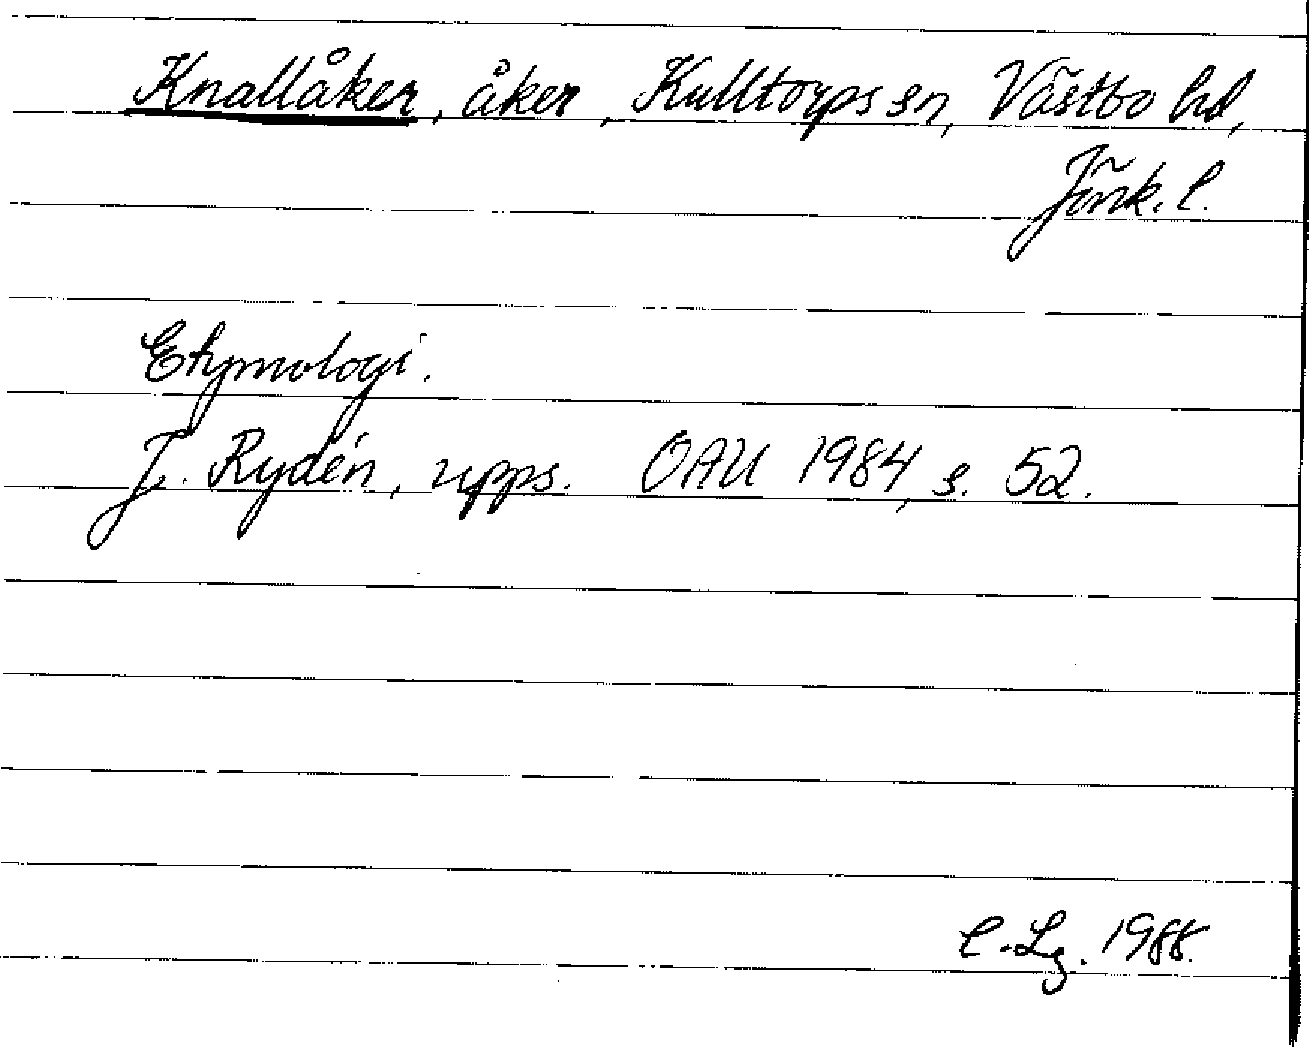 Knallåker, åker, Kulltorps sn, Västbo hd,
Jönk. l.
Etymologi.
J. Rydén, upps. OAU 1984, s. 52.
C-Lg. 1988.